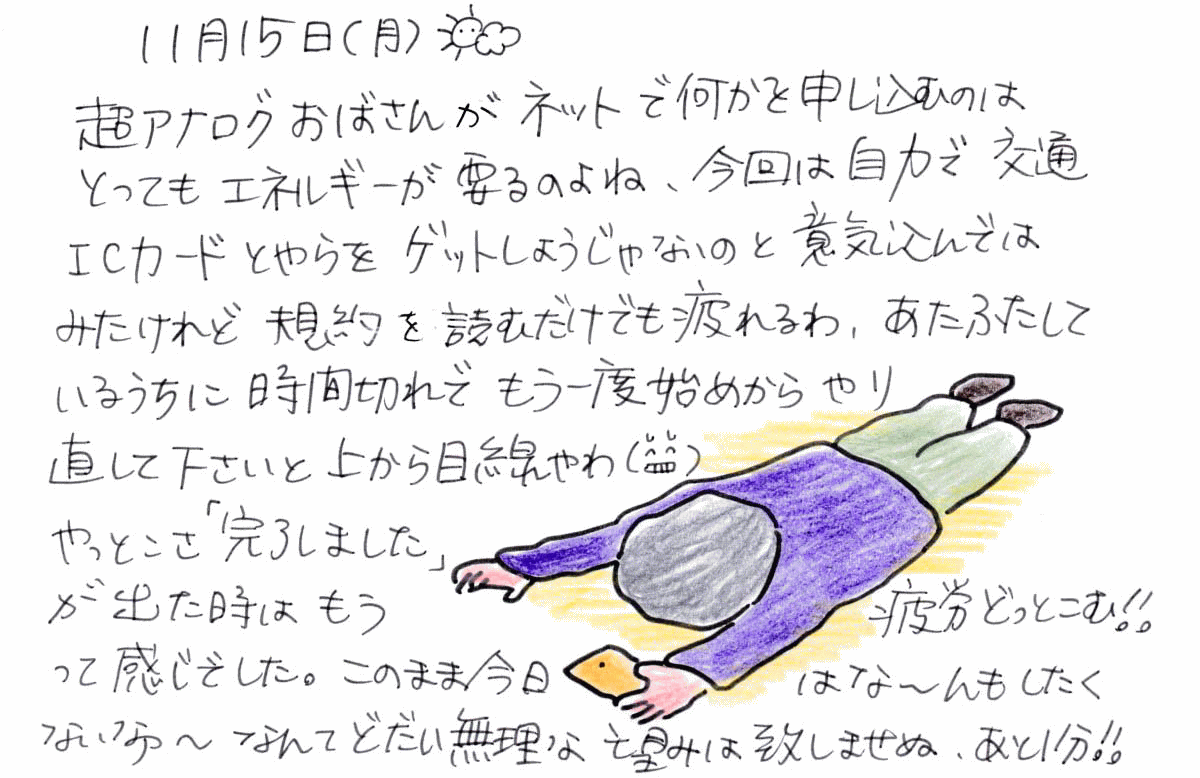 11月15日(月)
超アナログおばさんがネットで何かを申し込むのは
とってもエネルギーが要るのよね、今回は自力で交通
ICカードとやらをゲットしようじゃないのと意気込んでは
みたけれど規約を読むだけでも疲れるわ、あたふたして
いるうちに時間切れでもう一度始めからやり
直して下さいと上から目線やわ
やっとこさ「完了しました」
が出た時はもう疲労どっとこむ!!
って感じでした。このまま今日はな〜んもしたく
ないなぁ〜なんてどだい無理な望みは致しませぬ、あと1分!!